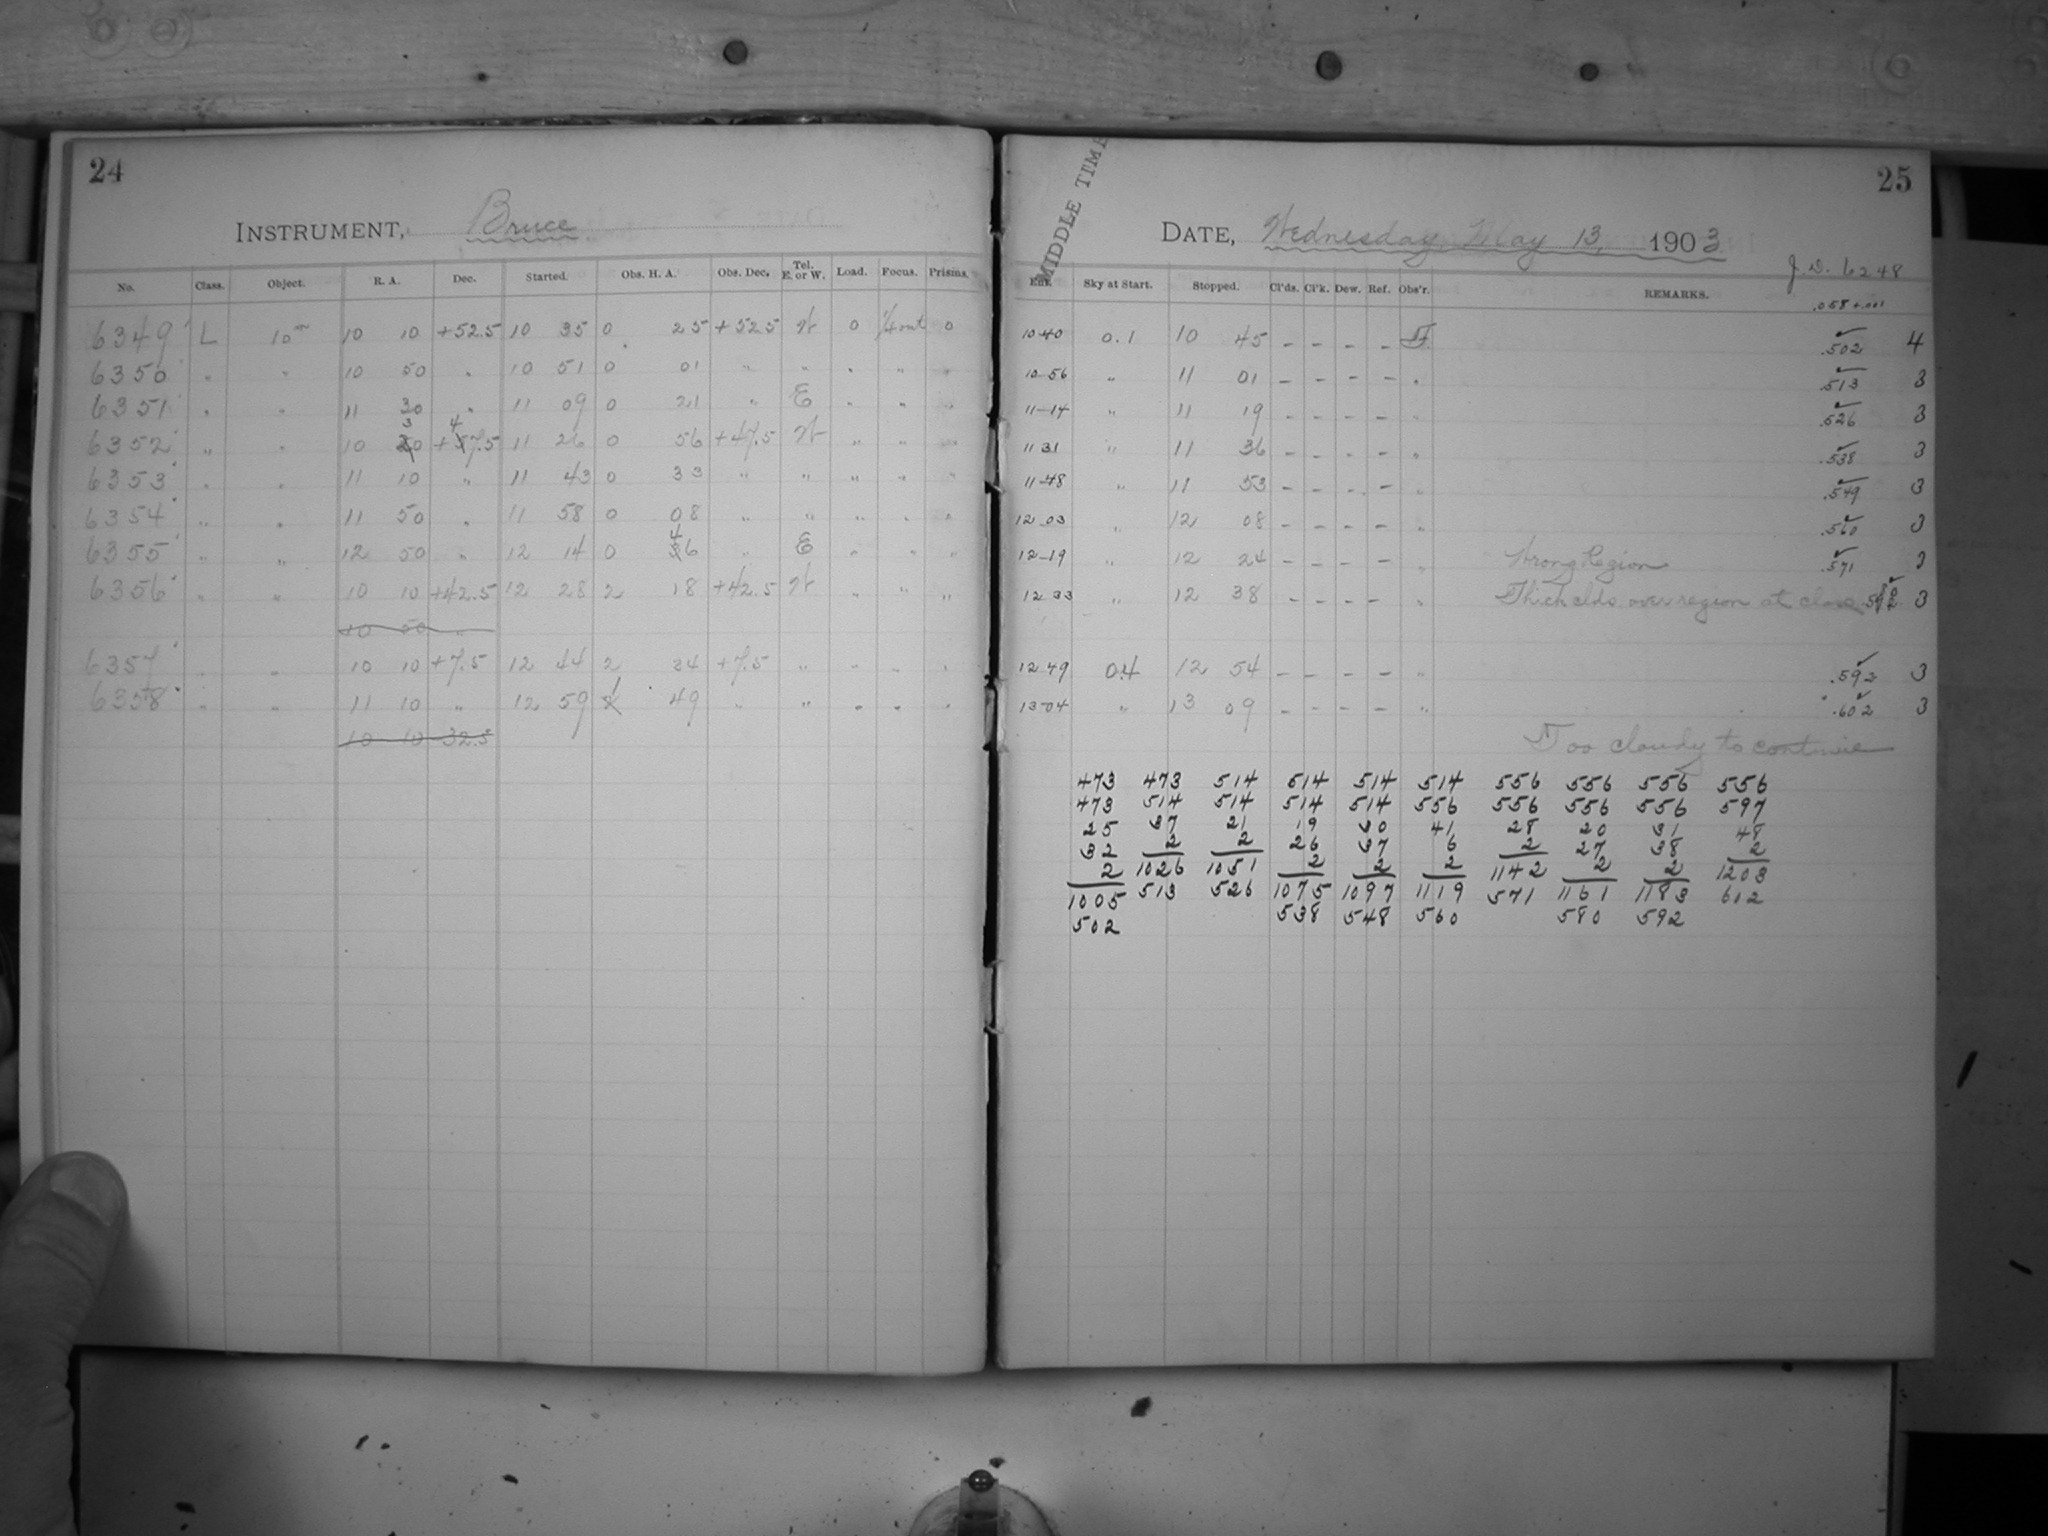 24
INSTRUMENT, Bruce
No. Class. Object. R. A. Dec. Started. Obs. H. A. Obs. Dec. Tel. E. or W. Load. Focus. Prisms.
6349 L 10m 10 10 +52.5 10 35 0 25 +52.5 W 0 0
6350 " " 10 50 " 10 51 0 01 " " " " "
6351 " " 11 30 " 11 09 0 21 " E " " "
6352 " " 10 30 +47.5 11 26 0 56 +47.5 W " " "
6353 " " 11 10 " 11 43 0 33 " " " " "
6354 " " 11 50 " 11 58 0 08 " " " " "
6355 " " 12 50 " 12 14 0 46 " E " " "
6356 " " 10 10 +42.5 12 28 2 18 +42.5 W " " "
10 50 "
6357 " " 10 10 +7.5 12 44 2 34 +7.5 " " " "
6358 " " 11 10 " 12 59 1 49 " " " " "
10 10 -32.5
25
MIDDLE TIME
DATE, Wednesday May 13, 1903
J. D. 6248
Sky at Start. Stopped. Cl'ds. Cl'k. Dew. Ref. Obs'r. REMARKS.
.058+.001
10-40 0.1 10 45 - - - - F. .502 4
10-56 " 11 01 - - - - " .513 3
11-14 " 11 19 - - - - " .526 3
11 31 " 11 36 - - - - " .538 3
11-48 " 11 53 - - - - " .549 3
12-03 " 12 08 - - - - " .560 3
12-19 " 12 24 - - - - " Wrong Region .571 3
12 33 " 12 38 - - - - " Thick clds over region at close 3
12-49 0.4 12 54 - - - - " .592 3
13-04 " 13 09 - - - - " .602 3
Too cloudy to continue
473 473 514 514 514 514 556 556 556 556
473 514 514 514 514 556 556 556 556 597
25 37 21 19 30 41 28 20 31 48
32 2 2 26 37 6 2 27 38 2
2 1026 1051 2 2 2 1142 2 2 1203
1005 513 526 1075 1097 1119 571 1161 1183 612
502 538 548 560 580 592